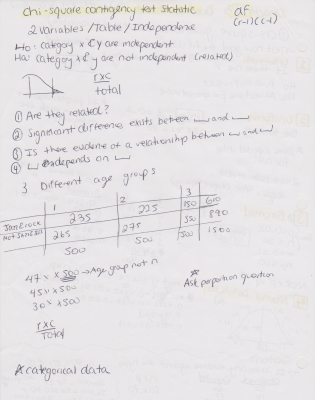 Chi-square contingency test statistic
df
(r-1)(c-1)
2 Variables/Table/Independence
Ho: category x & y are independent
Ha: category x & y are not independent (related)
rxc
total
① Are they related?
② Significant difference exists between __ and __
③ Is there evidence of a relationship between __ and __
④ __ depends on __
3 Different age groups
1 2 3
235 225 150 610
265 275 350 890
500 500 500 1500
47% x 500 → Age group not n
45% x 500
30% x 500
Ask proportion question
rxc
Total
categorical data